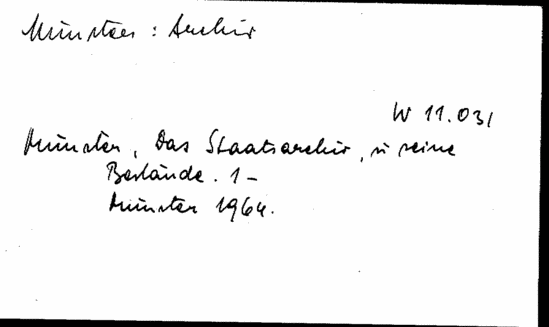 Münster : Archiv
W 11.031
Münster, Das Staatsarchiv, u seine
Bestände. 1-
Münster 1964.